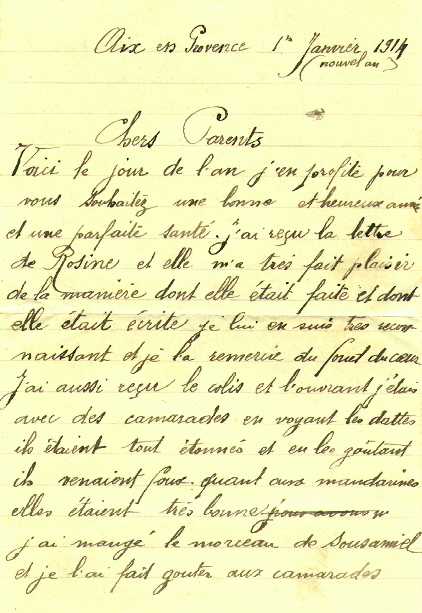 Aix en Provence 1er Janvier 1914
(nouvel an)
Chers Parents
Voici le jour de l'an j'en profite pour
vous souhaitez une bonne et heureux anné
et une parfaite santé. j'ai reçu la lettre
de Rosine et elle m'a très fait plaisir
de la manière dont elle était faite et dont
elle était écrite je lui en suis très recon
naissant et je la remercie du fond du cœur
J'ai aussi reçu le colis et l'ouvrant j'étais
avec des camarades en voyant les dattes
ils étaient tout étonnés et en les goûtant
ils venaient fous. quant aux mandarines
elles étaient très bonne
j'ai mangé le morceau de sousamiel
et je l'ai fait gouter aux camarades